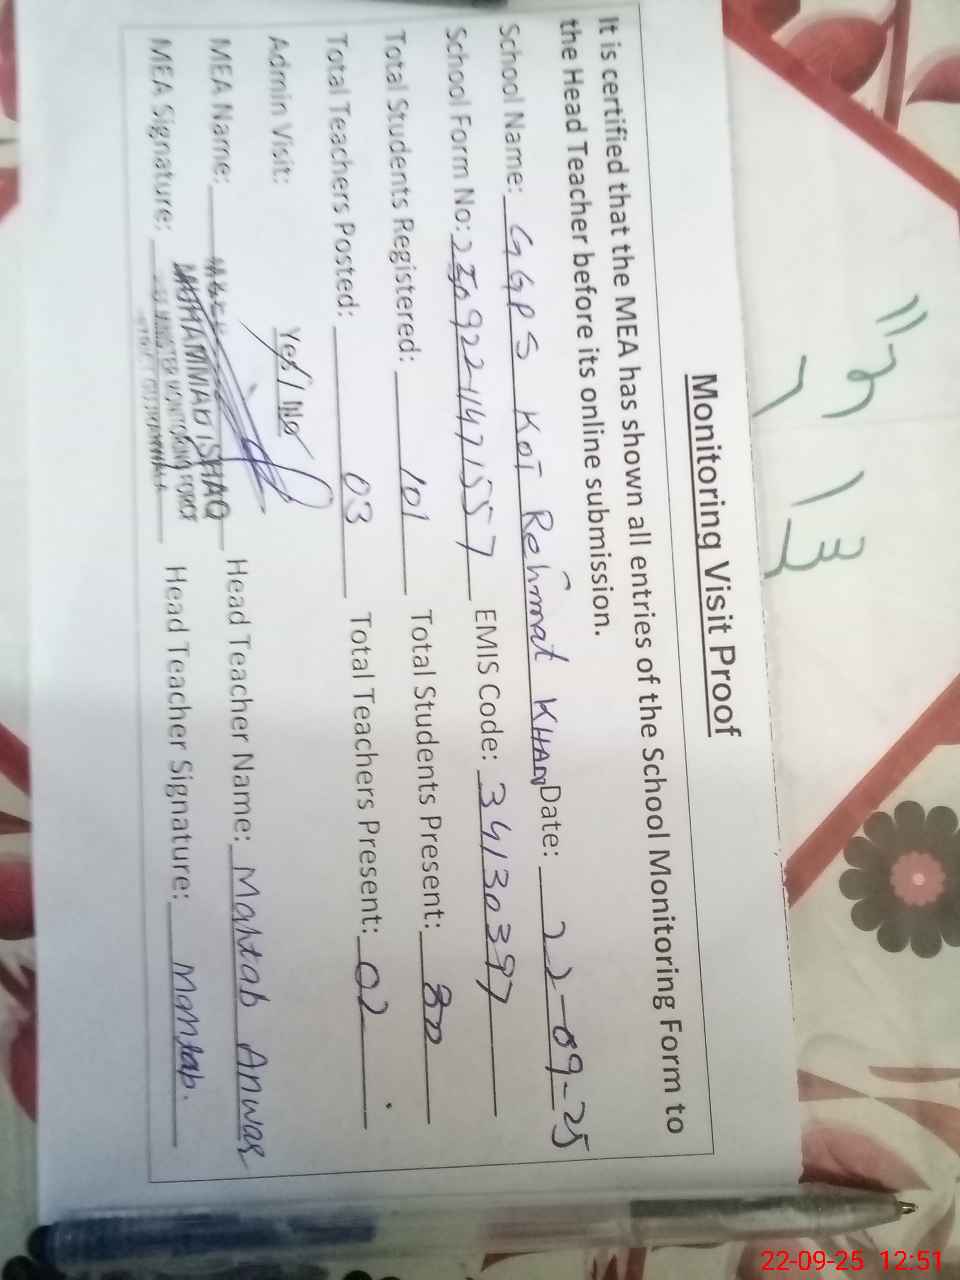 Monitoring Visit Proof
It is certified that the MEA has shown all entries of the School Monitoring Form to
the Head Teacher before its online submission.
School Name: GGPS Kot Rehmat KHAN Date: 22-09-25
School Form No: 250922147157 EMIS Code: 34130397
Total Students Registered: 101 Total Students Present: 80
Total Teachers Posted: 03 Total Teachers Present: 02
Admin Visit: Yes / No
MEA Name: MUHAMMAD ISHAQ Head Teacher Name: Mahtab Anwar
MEA Signature: MONITORING FORCE Head Teacher Signature: Mahtab.
22-09-25 12:51